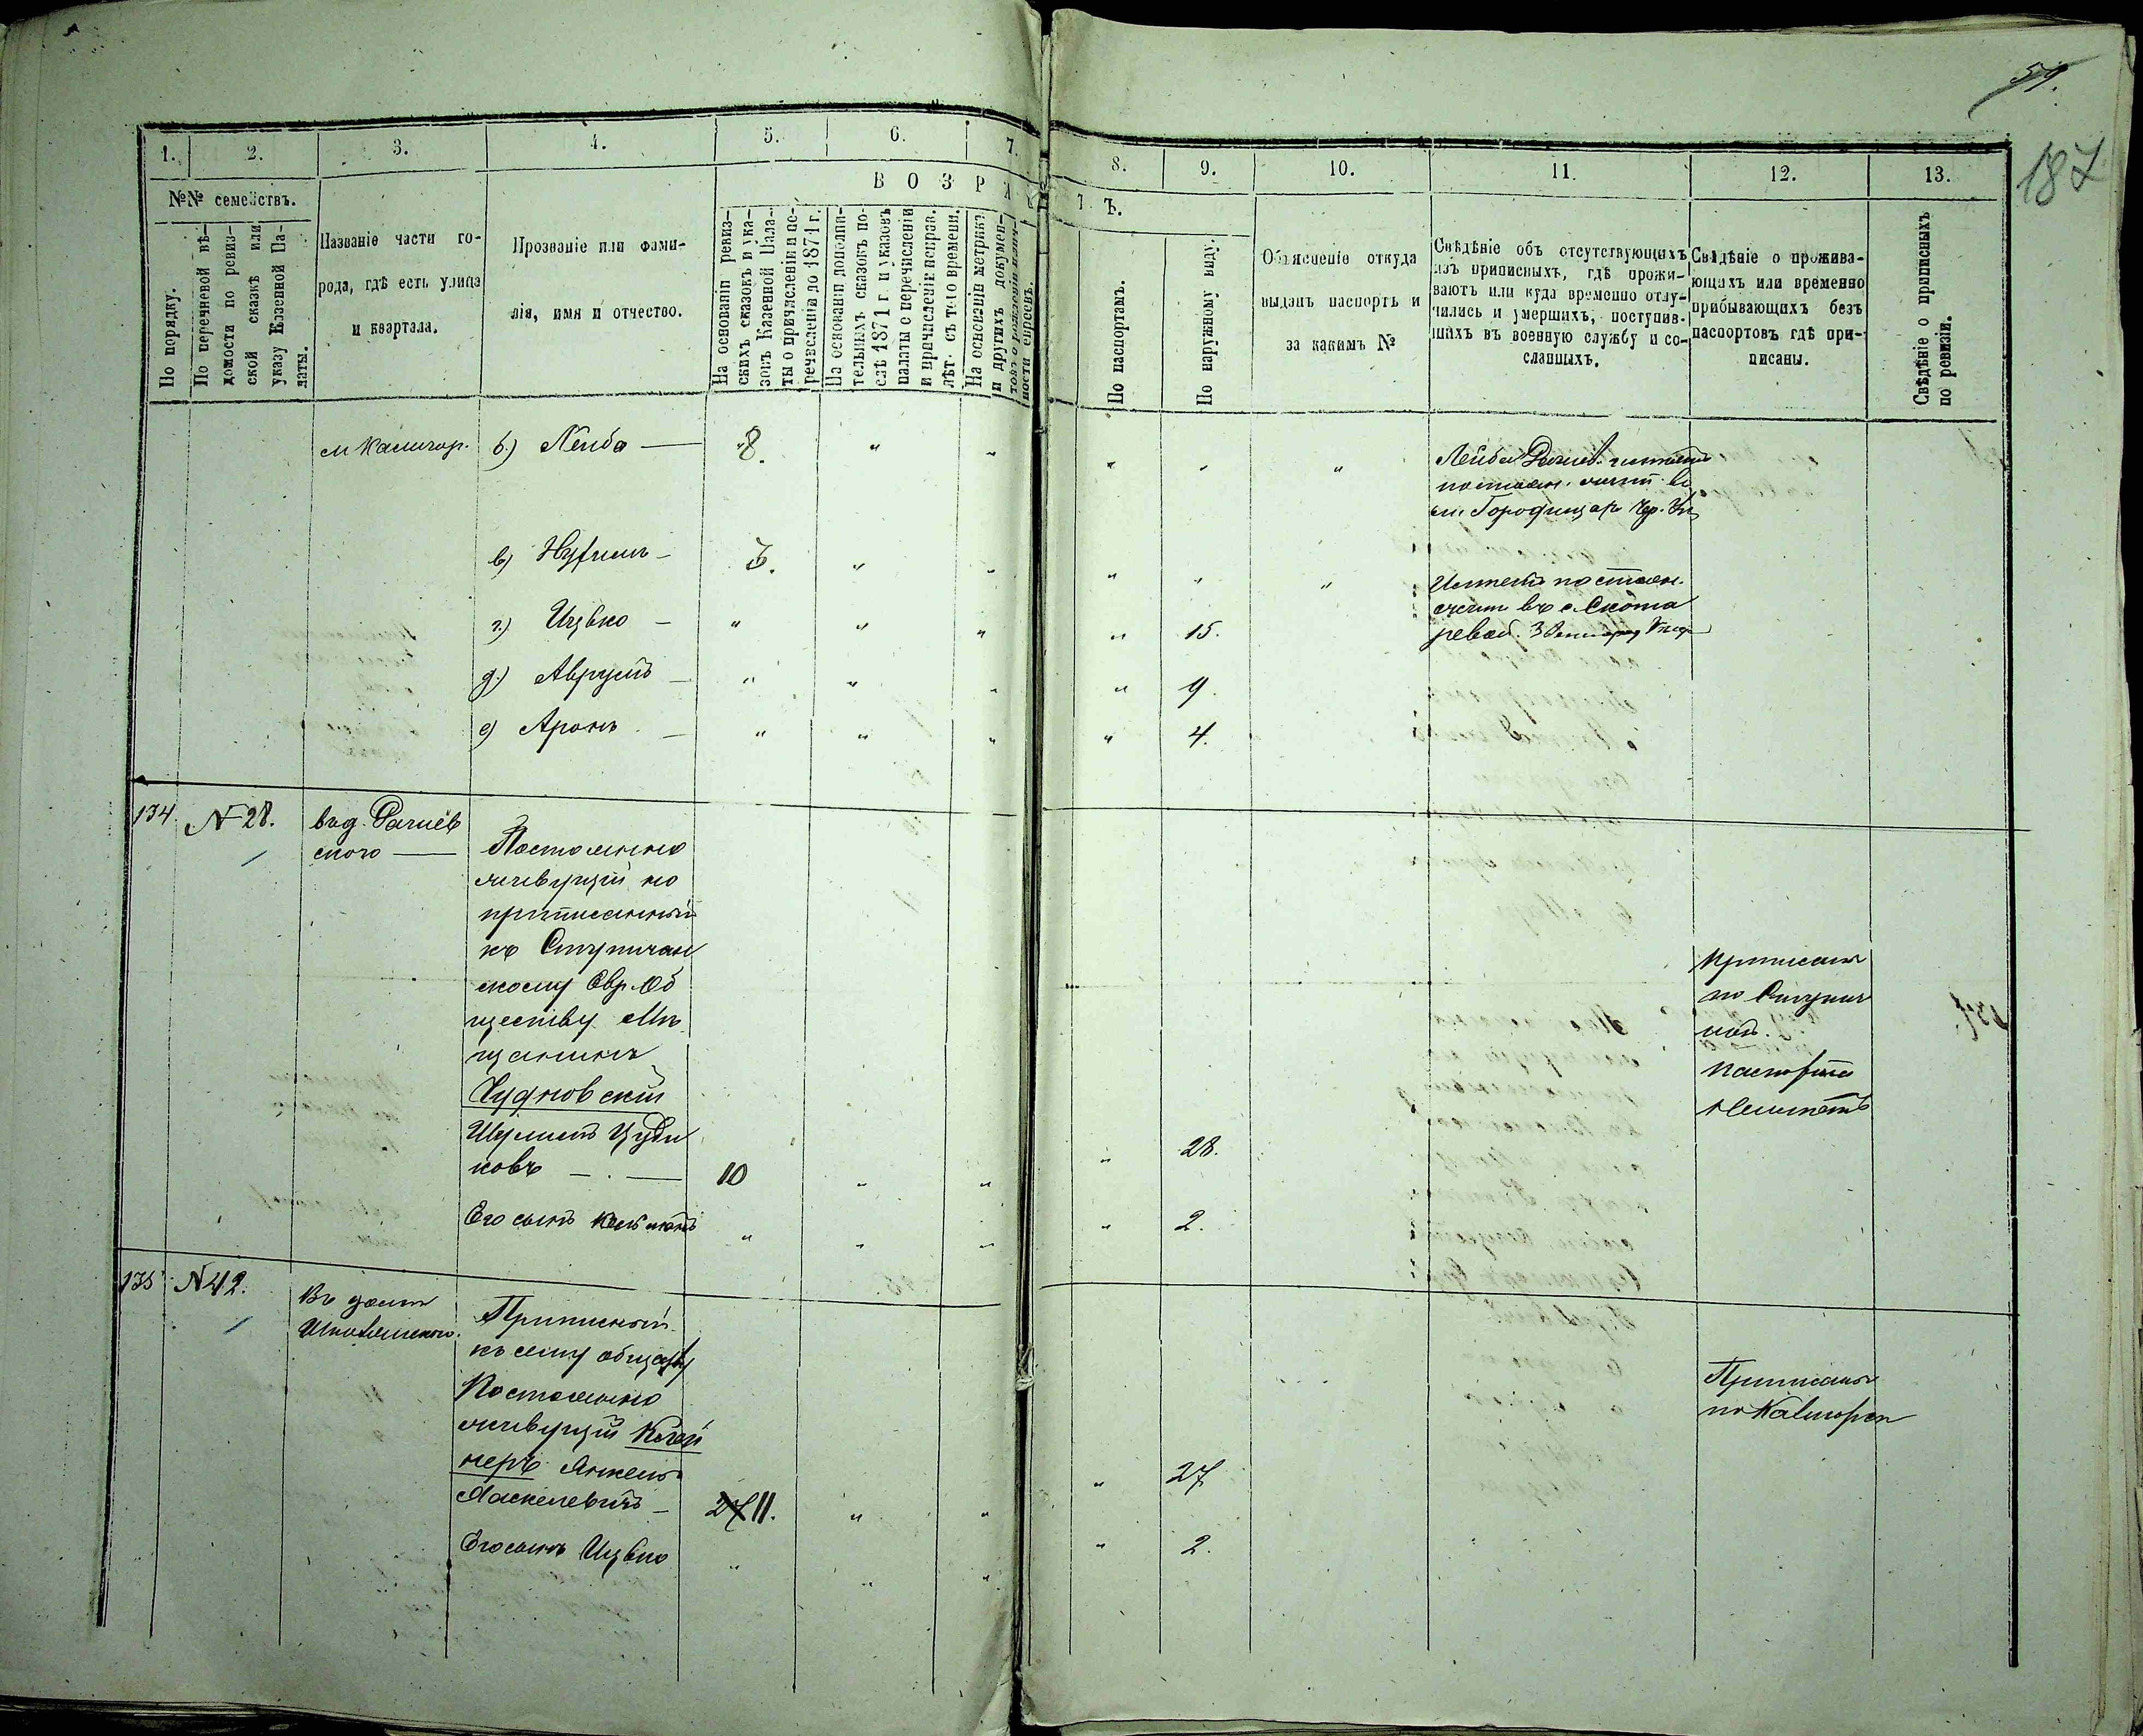 54.
187
1.
2.
3.
4.
5.
6.
7.
8.
9.
10.
11.
12.
13.
№№ семействъ.
По порядку.
По перечневой вѣ-
домости по ревиз-
ской сказкѣ или
указу Казенной Па-
латы.
Названіе части го-
рода, гдѣ есть улица
и квартала.
Прозваніе или фами-
лія, имя и отчество.
В О З Р А С Т Ъ.
На основаніи ревиз-
скихъ сказокъ и ука-
зовъ Казенной Пала-
ты о причисленіи и пе-
речисленіи до 1871 г.
На основаніи дополни-
тельныхъ сказокъ по-
слѣ 1871 г. и указовъ
палаты о перечисленіи
и причисленіе неправ.
лѣт. съ того времени.
На основаніи метрикъ
и другихъ докумен-
товъ о рожденіи
ности евреевъ.
По паспортамъ.
По наружному виду.
Объясненіе откуда
выданъ паспортъ и
за какимъ №
Свѣдѣніе объ отсутствующихъ
изъ приписныхъ, гдѣ прожи-
ваютъ или куда временно отлу-
чились и умершихъ, поступив-
шихъ въ военную службу и со-
сланныхъ.
Свѣдѣніе о прожива-
ющихъ или временно
прибывающихъ безъ
паспортовъ гдѣ при-
писаны.
Свѣдѣніе о приписныхъ
по ревизіи.
б.) Лейба — 8. " " " " "
Лейба
м. Городищахъ Чр. Уѣз
в) — 5. " " " " "
постоян.
въ с. Скота
ревой. Звенигород Уѣзд
г.) Ицько — " " " " 15.
д.) Аврумъ — " " " " 9.
е) Аронъ — " " " " 4.
134. N 28.
ского — Постоянно
живущій но
приписанный
къ Ступичан
скому Евр. Об
ществу Мѣ
щанинъ
Чудновскій
ковъ — 10 " " " 28.
Его сынъ " " " " 2.
Приписанъ
по Ступич
ной.
Паспорта
неимѣетъ
135 N 42.
Въ домѣ
Приписный
къ сему обществу
Постоянно
живущій Клей
неръ Янкель
— 11. " " " 27
Его сынъ Ицько " " " " 2.
Приписанъ
по